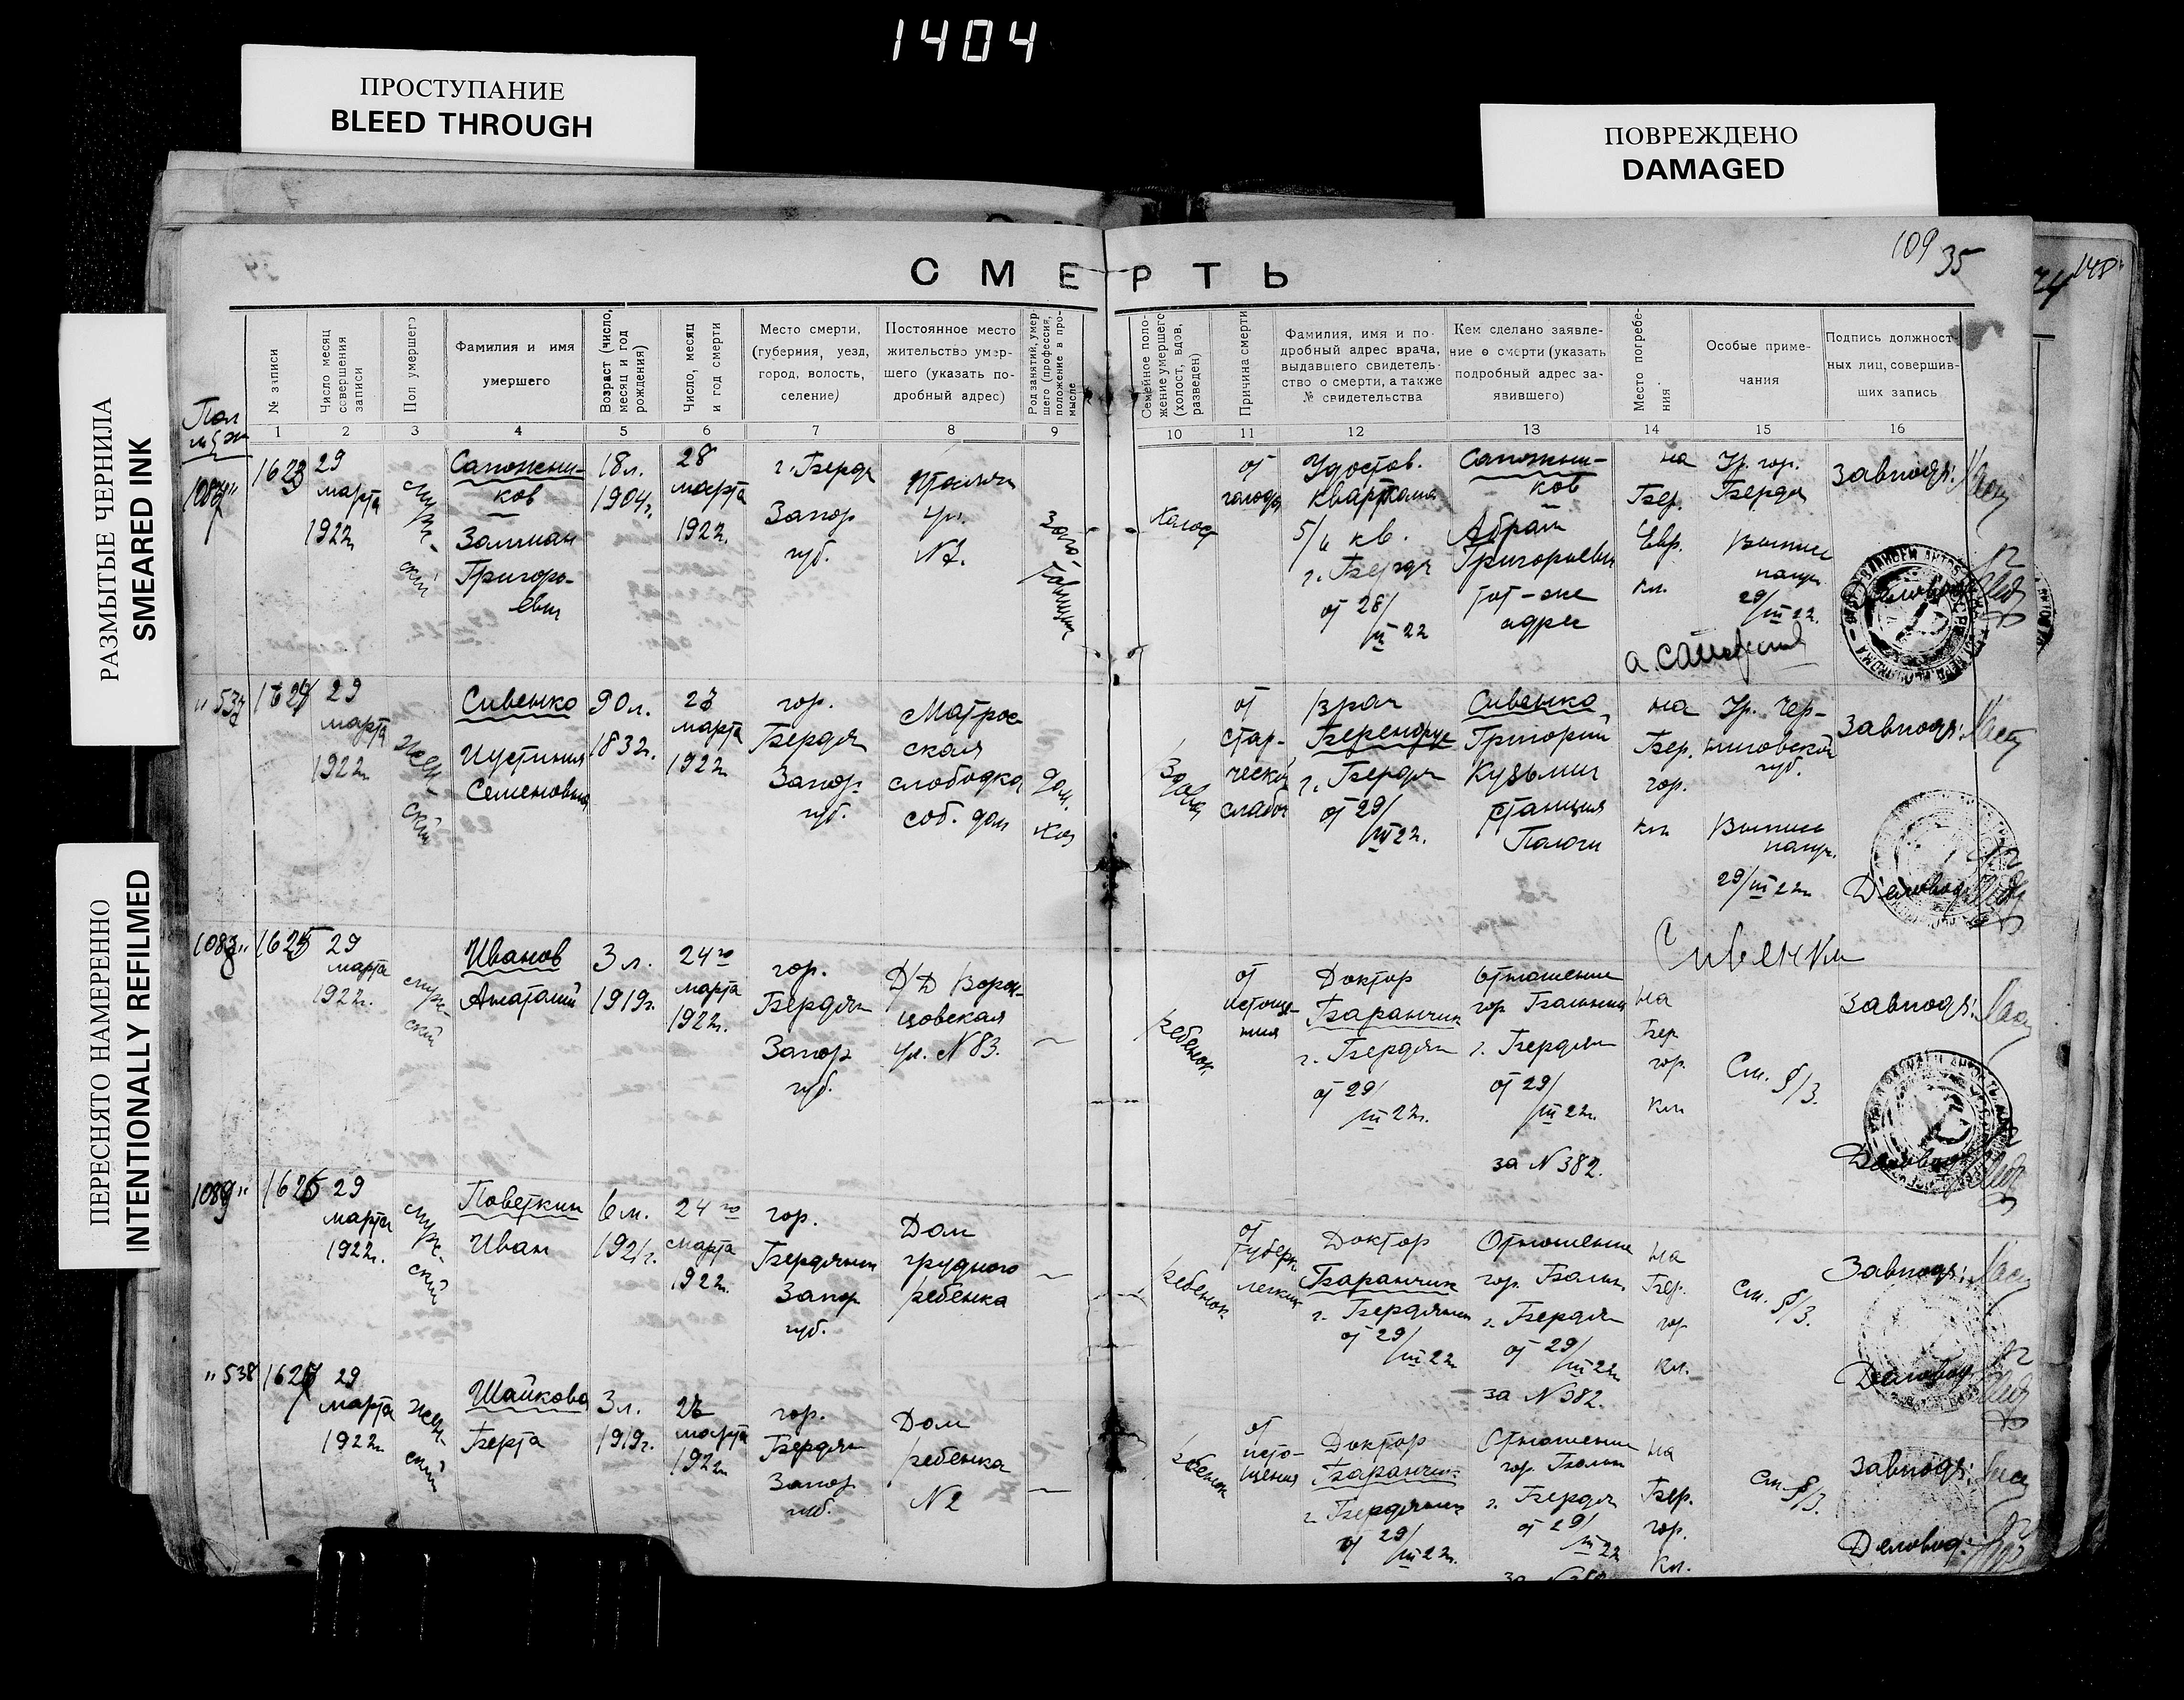 1404
ПРОСТУПАНИЕ
BLEED THROUGH
ПОВРЕЖДЕНО
DAMAGED
РАЗМЫТЫЕ ЧЕРНИЛА
SMEARED INK
ПЕРЕСНЯТО НАМЕРЕННО
INTENTIONALLY REFILMED
109 35
148
СМЕРТЬ
№ записи
Число месяц
совершения
записи
Пол умершего
Фамилия и имя
умершего
Возраст (число,
месяц и год
рождения)
Число, месяц
и год смерти
Место смерти,
(губерния, уезд,
город, волость,
селение)
Постоянное место
жительство умер-
шего (указать по-
дробный адрес)
Род занятий, умер-
шего (профессия,
положение в про-
мысле
Семейное поло-
жение умершего
(холост, вдов,
разведен)
Причина смерти
Фамилия, имя и по-
дробный адрес врача,
выдавшего свидетель-
ство о смерти, а также
№ свидетельства
Кем сделано заявле-
ние о смерти (указать
подробный адрес за-
явившего)
Место погребе-
ния
Особые приме-
чания
Подпись должност-
ных лиц, совершив-
ших запись
Пол
1 2 3 4 5 6 7 8 9 10 11 12 13 14 15 16
1623
29
марта
1922г
муж-
ский
Сапожни-
ков
Залман
Григорь-
евич
18л.
1904г.
28
марта
1922г.
г. Бердя
Запор
губ.
ул.
Холост
от
голода
Удостов.
квартала
5/
кв.
г. Бердя
от 28/
III 22
Сапожни-
ков
Абрам
Григорьевич
тот-же
адрес
на
Бер.
Евр.
кл.
Ур. гор.
Бердя
29/III 22.
Завподя:
"537
1624
29
марта
1922г
жен-
ский
Сивенко
Иустиния
Семеновна
90л.
1832г.
марта
1922г
гор.
Бердян
Запор.
губ.
Матрос-
ская
слободка
соб. дом
дом.
хоз
Вдова
от
стар-
ческой
слабос
Врач
г. Бердян
от 29/
III 22.
Сивенко
Григорий
Кузьмич
станция
Пологи
на
Бер.
гор.
кл
Ур. Чер-
ниговской
губ.
29/III 22г
Завподя:
Деловод
Сивенко
1625
29
марта
1922г.
муж-
ский
Иванов
Анатолий
3 л.
1919г.
24го
марта
1922г.
гор.
Бердян
Запор
губ.
Д/Д Ворон-
цовская
ул. N 83.
—
ребенок
от
истоще-
ния
Доктор
Баранчик
г. Бердян
от 29/
III 22г.
Отношение
гор Больниц
г. Бердян
от 29/
III 22г.
за N 382.
на
Бер
гор.
кл
См. §/3.
Завподя:
Деловод
1089"
29
марта
1922г.
муж-
ский
Поветкин
Иван
6м.
1921г.
24го
марта
1922г.
гор.
Бердянск
Запор
губ.
Дом
грудного
ребенка
—
ребенок
от
туберк
легких
Доктор
Баранчик
г. Бердянск
от 29/
III 22г
Отношение
гор. Больн
г. Бердян
от 29/
III 22г
за N 382.
на
Бер.
гор
кл.
См. §/3.
Завподя:
Деловод
"538
29
марта
1922г
жен-
ский
Шайкова
Берта
3л.
1919г.
марта
1922г
гор.
Бердян
Запор
губ.
Дом
ребенка
N 2
—
ребенок
от
исто-
щения
Доктор
Баранчик
г. Бердянск
от 29/
III 22г.
Отношение
гор. Больн
г. Бердя
от 29/
III 22
на
Бер.
гор.
Кл.
См. §/3.
Завподя:
Деловод.